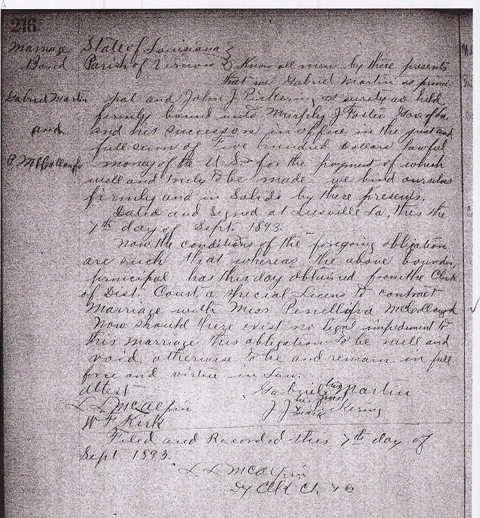 216
Marriage State of Louisiana }
Bond Parish of Vernon } Know all men by these presents
that we Gabriel Martin as princi
Gabriel Martin pal and John J. Pickering as surety as held
firmly bound unto Murphy J Foster Gov. of La
and and his successors in office in the just and
full sum of Five hundred Dollars lawful
P. McCollough money of the U.S. for the payment of which
well and truly to be made we bind ourselves
firmly and in Solido by these presents,
Dated and Signed at Leesville La, this the
7th day of Sept. 1893.
Now the conditions of the foregoing obligation
are such that whereas the above bounden
principal has this day obtained from the Clerk
of Dist. Court a Special License to contract
Marriage with Miss McCollough
Now should there exist no legal impediment to
this marriage this obligation to be null and
void, otherwise to be and remain in full
force and virtue in Law.
Attest Gabriel his Martin
L L McAlpin J J Pickering
W F Kirk
Filed and Recorded this 7th day of
Sept 1893.
L L McAlpin
Dy Clk